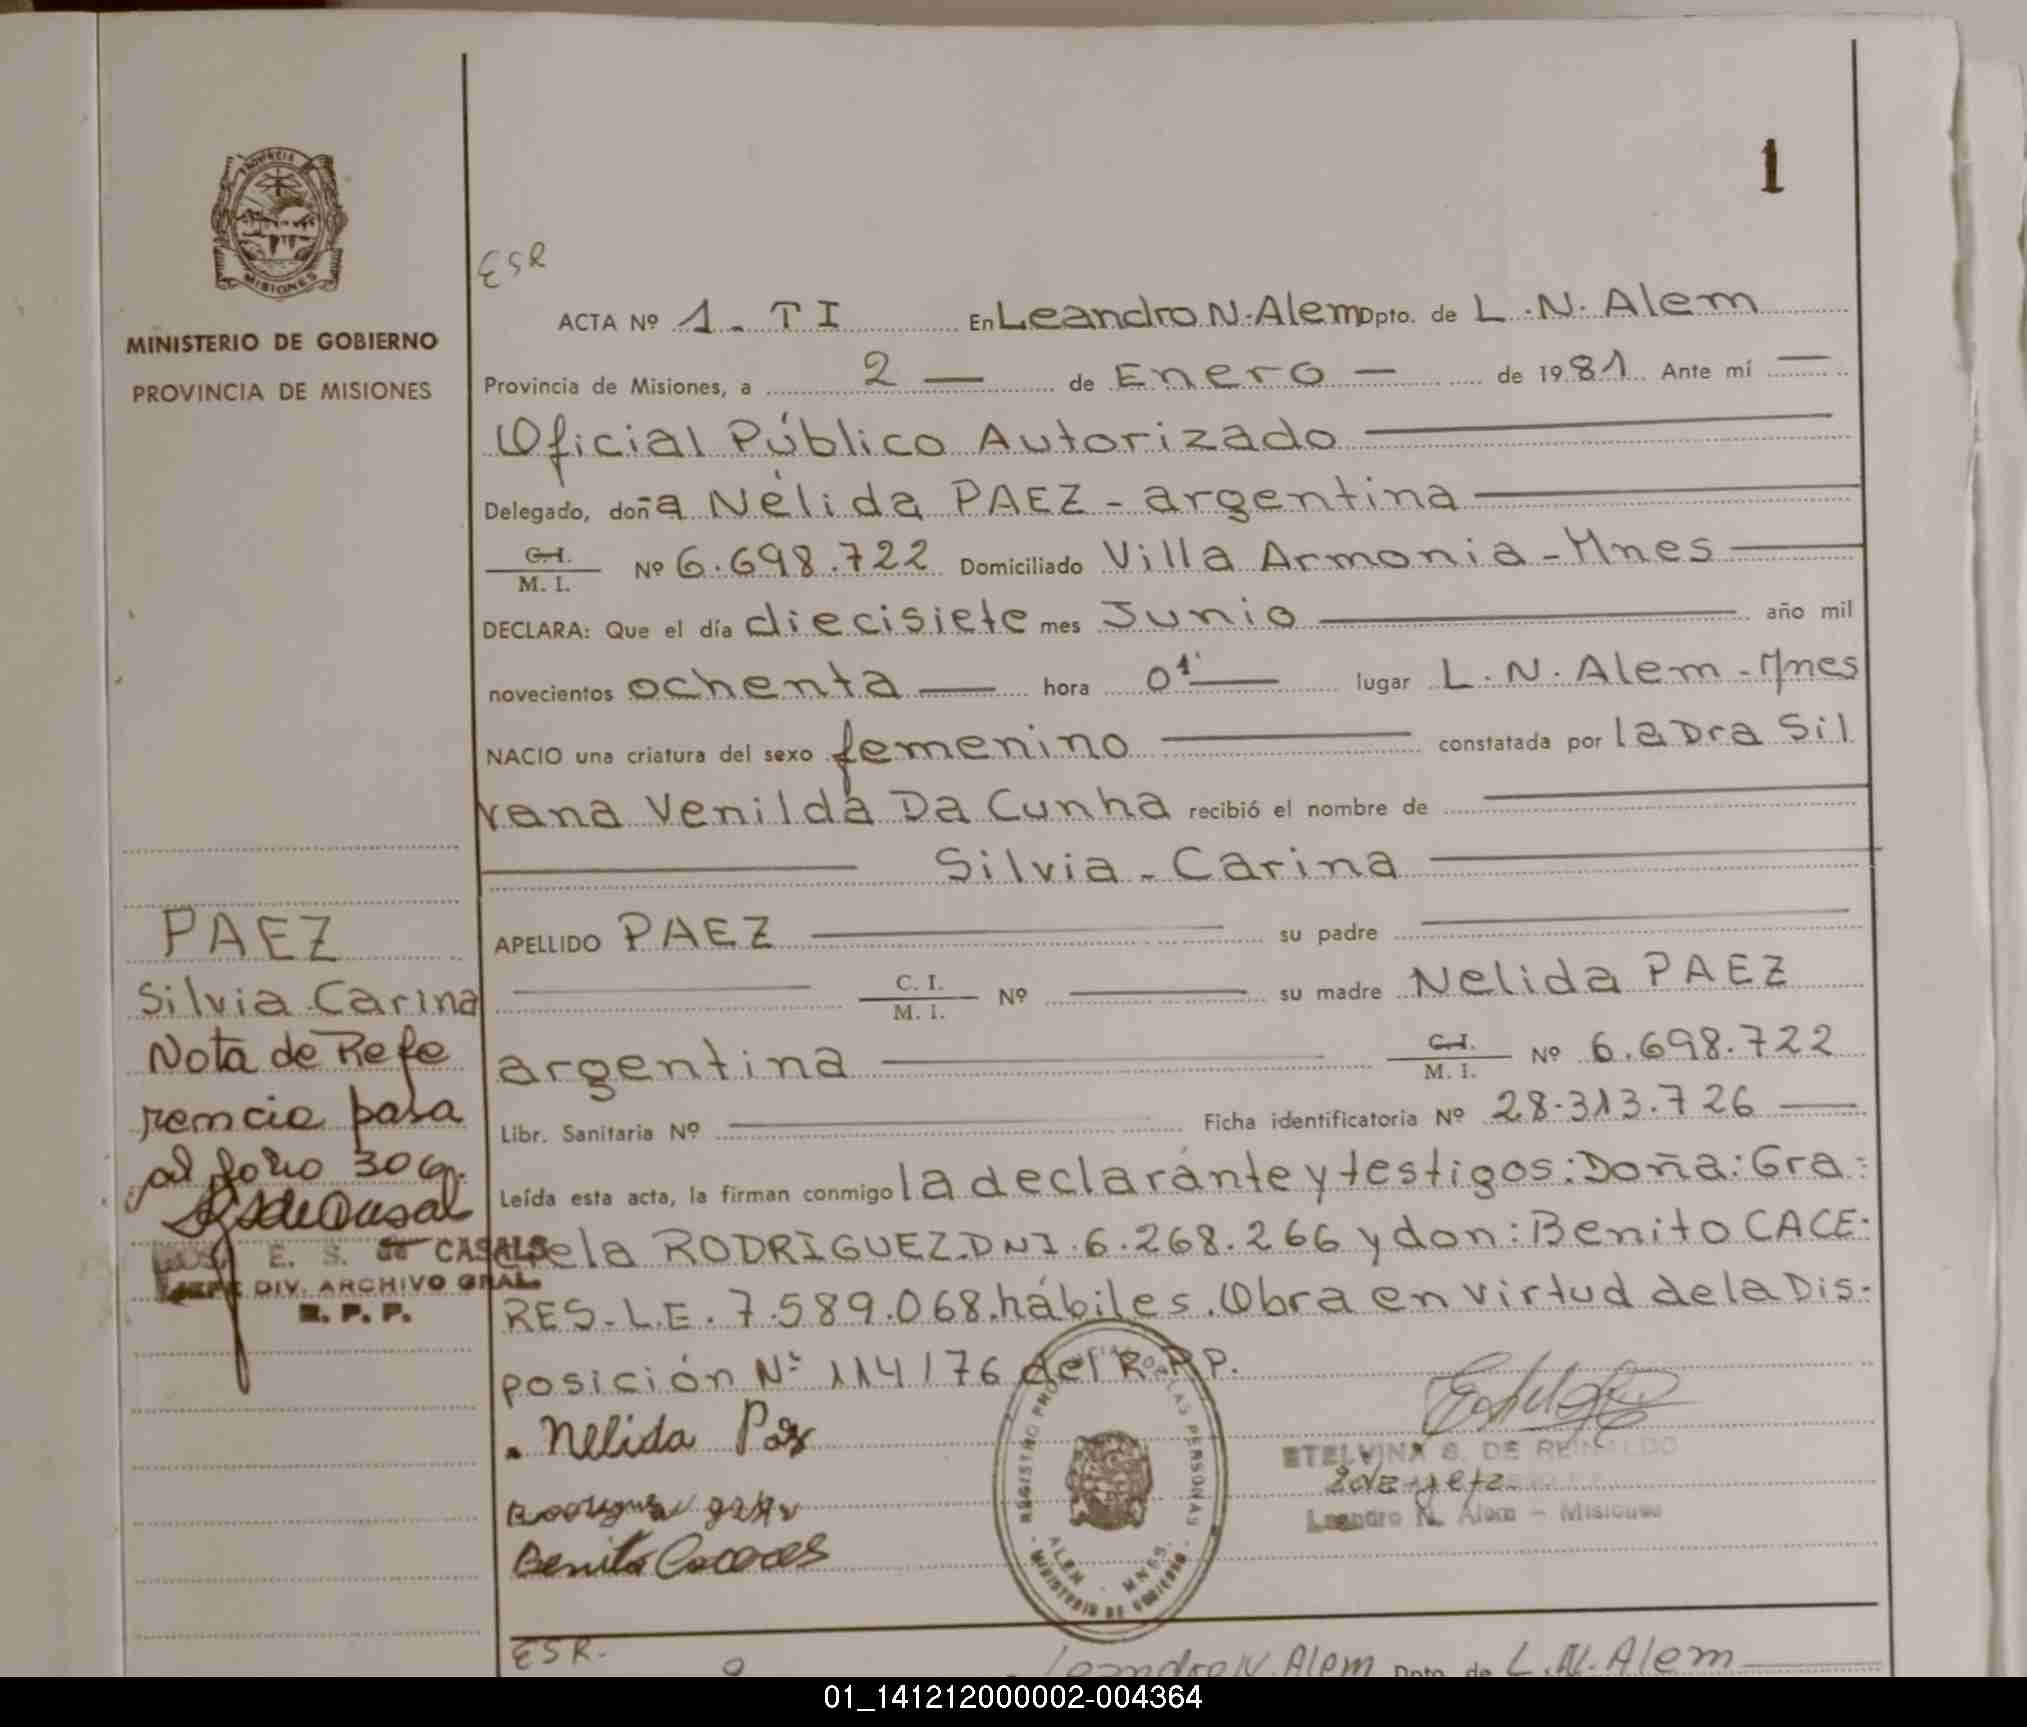 1
PROVINCIA
MISIONES
MINISTERIO DE GOBIERNO
PROVINCIA DE MISIONES
ESR
ACTA Nº 1 - TI En Leandro N. Alem Dpto. de L. N. Alem
Provincia de Misiones, a 2 — de Enero — de 1981 Ante mí —
Oficial Público Autorizado
Delegado, doña Nélida PAEZ - argentina
C.I. / M. I. Nº 6.698.722 Domiciliado Villa Armonia - Mnes
DECLARA: Que el día diecisiete mes Junio año mil
novecientos ochenta — hora 01 — lugar L. N. Alem - Mnes
NACIO una criatura del sexo femenino constatada por la Dra Sil
vana Venilda Da Cunha recibió el nombre de
Silvia - Carina
APELLIDO PAEZ su padre
C. I. / M. I. Nº — su madre Nelida PAEZ
argentina C.I. / M. I. Nº 6.698.722
Libr. Sanitaria Nº — Ficha identificatoria Nº 28.313.726 —
Leída esta acta, la firman conmigo la declarante y testigos: Doña: Gra:
ciela RODRIGUEZ. DNI. 6.268.266 y don: Benito CACE:
RES - L.E. 7.589.068. hábiles. Obra en virtud de la Dis-
posición Nº 114/76 del R.P.P.
Nelida Paz
Benito Caceres
REGISTRO PROVINCIAL DE LAS PERSONAS
ALEM - MNES.
MINISTERIO DE GOBIERNO
ETELVINA S. DE REINALDO
Leandro N. Alem - Misiones
PAEZ
Silvia Carina
Nota de Refe
rencia pasa
al folio 306
E. S. de CASALS
JEFE DIV. ARCHIVO GRAL.
R. P. P.
ESR.
Leandro N. Alem Dpto. de L. N. Alem
01_141212000002-004364